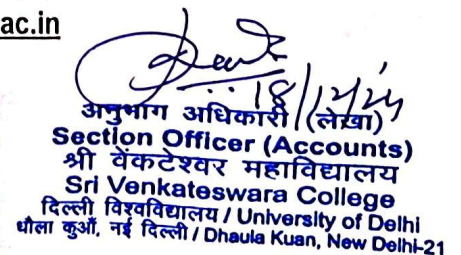 ac.in
18/12/24
अनुभाग अधिकारी (लेखा)
Section Officer (Accounts)
श्री वेंकटेश्वर महाविद्यालय
Sri Venkateswara College
दिल्ली विश्वविद्यालय / University of Delhi
धौला कुआँ, नई दिल्ली / Dhaula Kuan, New Delhi-21